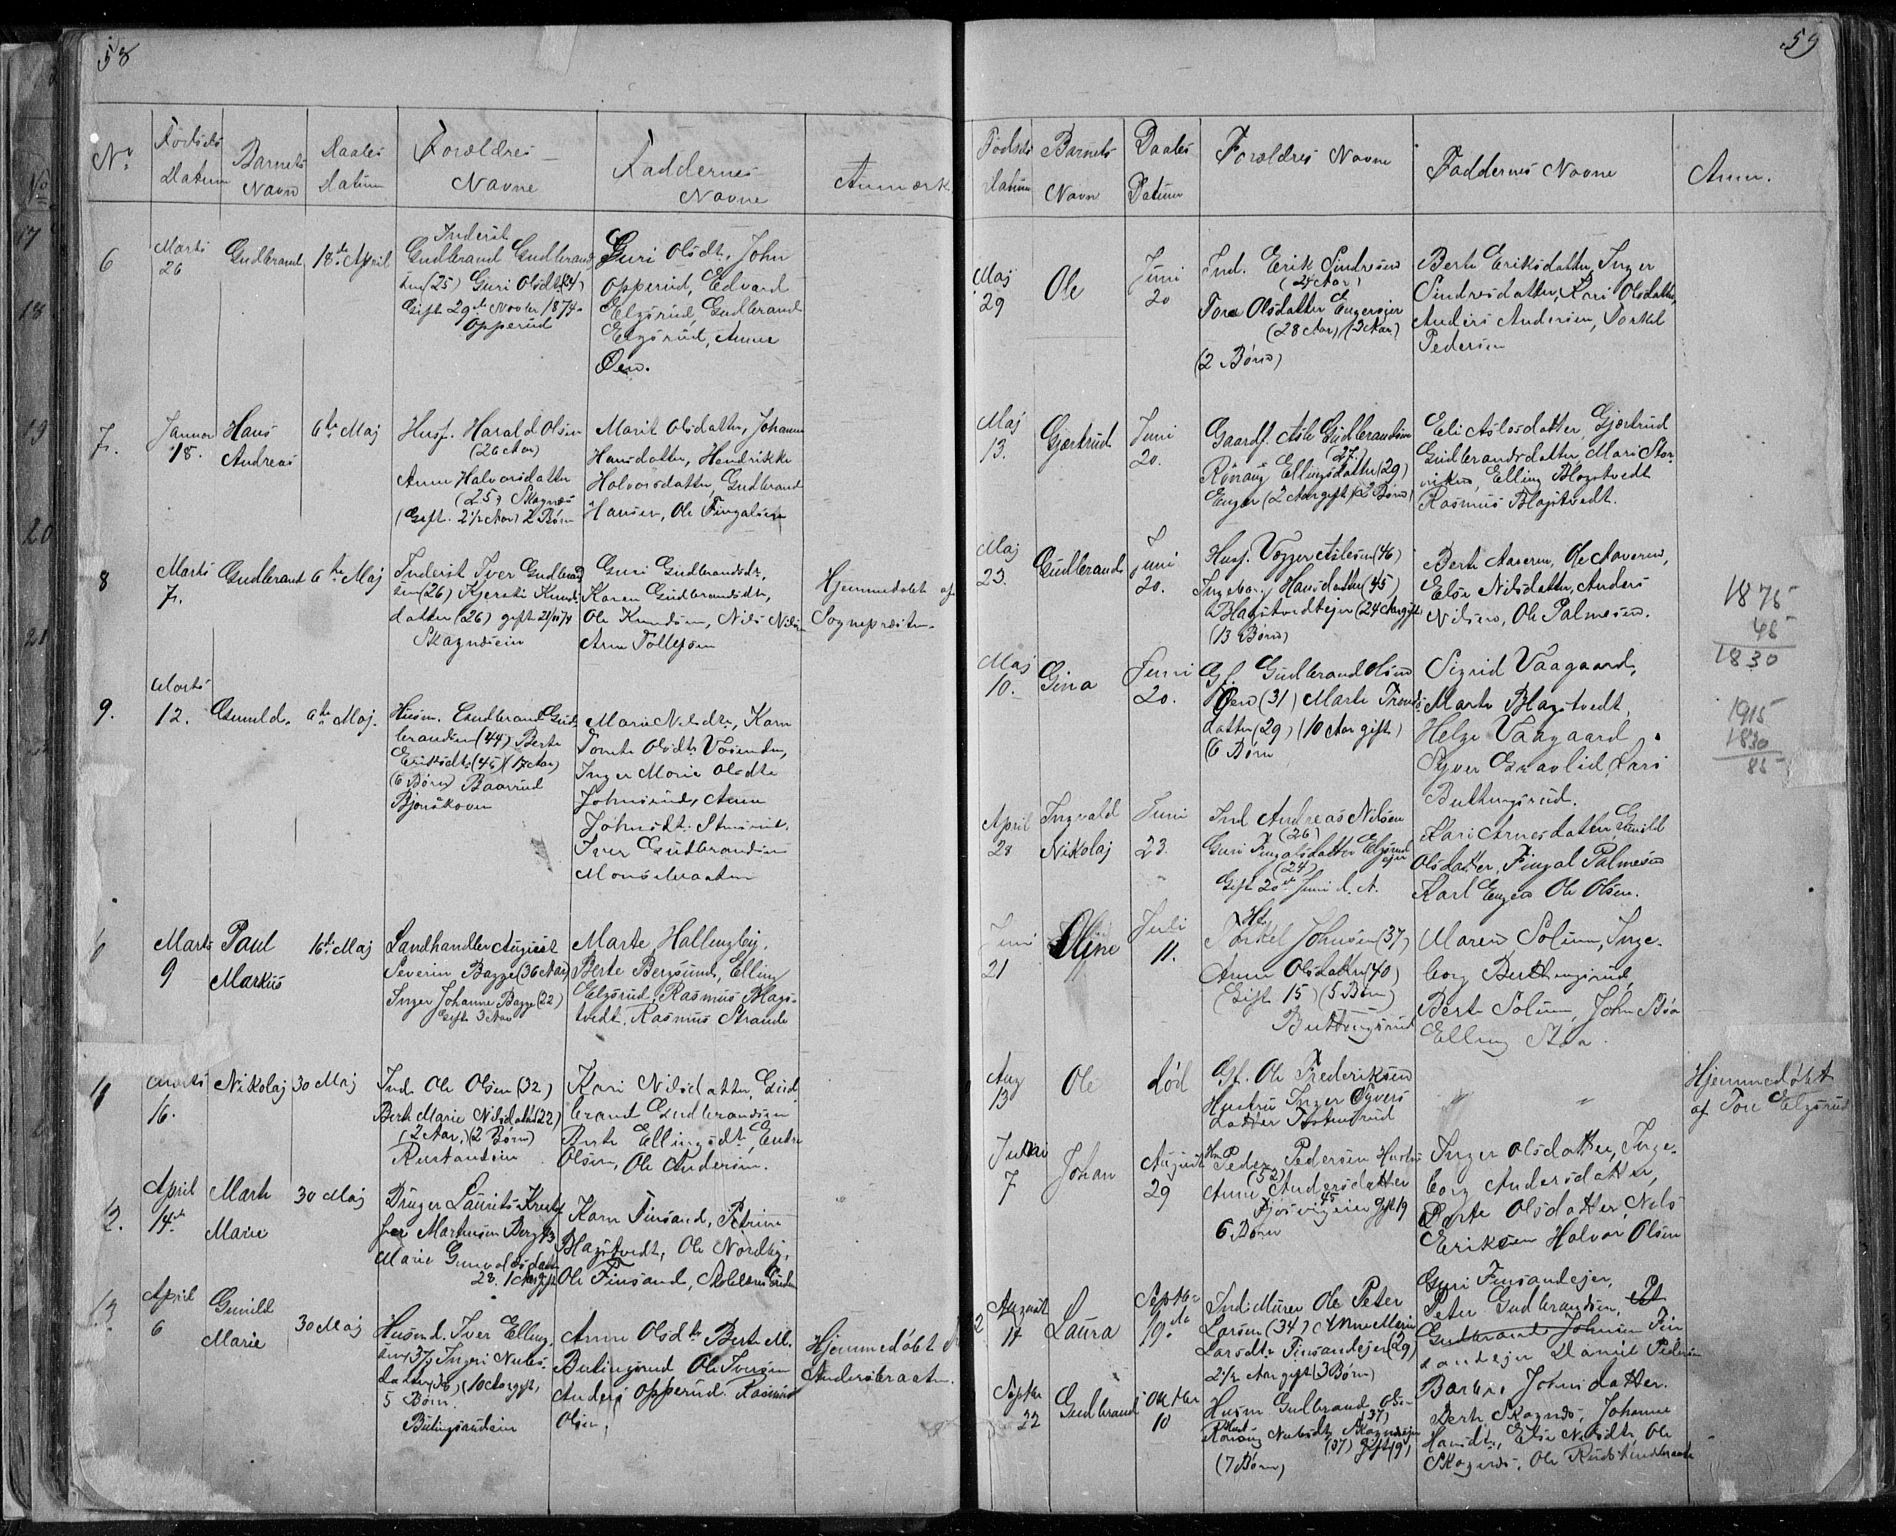 58
No
Fødsels Datum
Barnets Navn
Daabs Datum
Forældres Navne
Faddernes Navne
Anmærk.
6
Marts 26
Gudbrand
18de April
Inderst
Gudbrand Gudbrand
sen (25) Guri Olsdt (24)
Gift 29de Novbr 1874
Opperud
Guri Olsdtr, John
Opperud, Edvard
Elgsrud, Gudbrand
Elgsrud, Anne
Øen.
7.
Januar 18.
Hans
Andreas
6te Maj
Husf. Harald Olsen
(26 Aar)
Anne Halvorsdatter
(25) Skagnæs
(Gift. 2 1/2 Aar) 2 Børn
Marit Olsdatter, Johanne
Hansdatter, Hendrikke
Halvorsdatter, Gudbrand
Hansen, Ole Fingalsen
8
Marts 7.
Gudbrand
6te Maj
Inderst Iver Gudbrand
sen (26) Kjersti Knuds
datter (26) gift 21/11 74
Skagnæseien
Guri Gudbrandsdtr,
Karen Gudbrandsdtr,
Ole Knudsen, Nils Nilsen
Arne Tollefsen
Hjemmedøbt af
Sognepresten.
9.
Marts 12.
Gunild.
6te Maj.
Husm. Gudbrand Gud
brandsen (44) Berte
Eriksdt. (45) (17 Aar)
(6 Børn) Baarrud
Bjørnskoven
Marie Nilsdtr, Karn
Tomte Olsdtr
Inger Marie Olsdtr
Johnsrud, Anne
Johnsdt.
Iver Gudbrandsen
Monsebraaten
Marts 9
Paul
Markus
16de Maj
Landhandler August
Severin Bagge (36 Aar)
Inger Johanne Bagge (22)
Gift 3 Aar
Marte Hallingby,
Berte Bergsund, Elling
Elgsrud, Rasmus Blags-
tvedt, Rasmus Strande
11
Marts 16.
Nikolaj
30 Maj
Ind. Ole Olsen (32)
Berte Marie Nilsdatter (22)
(2 Aar, (2 Børn)
Rustanseien
Kari Nilsdatter, Gud
brand Gudbrandsen
Berte Ellingsdt, Endre
Olsen, Ole Andersen.
12.
April 14de
Marte
Marie
30 Maj
Bruger Laurits Kristof
fer Martinsen Berg 23
Marie Gunvaldsdatter
28. 1 Aar gift
Karn Finsand, Petrine
Blagstvedt, Ole Nordby,
Ole Finsand,
13.
April 6
Gunild
Marie
30 Maj
Husmd. Iver Elling
sen (37) Ingeri Nubs
datter (36) (10 Aar gift,
5 Børn.
Butingsrudeien
Anne Olsdtr Berte M.
Butingsrud Ole Iversen
Anders Opperud. Rasmus
Olsen,
Hjemmedøbt
Andersbraaten.
59
Fødsels Datum
Barnets Navn
Daabs Datum
Forældres Navne
Faddernes Navne
Anm.
Maj 29
Ole
Juni 20
Ind. Erik Sindresen
(24 Aar)
Tore Olsdatter Engerejer
(28 Aar) (2 Aar)
(2 Børn)
Berte Eriksdatter, Inger
Sindresdatter, Kari Olsdatter,
Anders Andersen, Torkel
Pedersen
Maj 13.
Gjertrud
Juni 20.
Gaardf. Asle Gudbrandsen
(27)
Rønaug Ellingsdatter (29)
Enger (2 Aar gift) (2 Børn)
Eli Aslesdatter, Gjertrud
Gudbrandsdatter, Mari Stor
viken, Elling Blagstvedt
Rasmus Blagstvedt.
Maj 23.
Gudbrand
Juni 20.
Husf. Vegger Aslesen (46)
Ingeborg Hansdatter (45)
Blagstvedtejer (24 Aar gift
(13 Børn)
Berte Aaseren, Ole Aaveren,
Else Nilsdatter, Anders
Nilsen, Ole Palmesen.
1875
45
1830
Maj 10.
Gina
Juni 20.
Gf. Gudbrand Olsen
Øen (31) Marte Trons
datter (29) (10 Aar gift)
(6 Børn
Sigrid Vaagaard,
Marte Blagstvedt,
Helge Vaagaard
Syver Gravlid, Lars
Buttingsrud.
1915
1830
85
April 28
Ingvald
Nikolaj
Juni 23.
Ind Andreas Nilsen
(26)
Guri Fingalsdatter Elgsrud
ejer
(24)
Gift 20de Juni d. A.
Kari Arnesdatter, Gunild
Olsdatter, Fingal Palmesen
Karl Engen Ole Olsen.
Juni 21
Oline
Juli 11.
Hd.
Torkel Johnsen (37)
Anne Olsdatter (40)
(Gift 15) (5 Børn)
Buttingsrud
Maren Solum, Inge-
borg Buttingsrud,
Berte Solum, John Støa
Elling Støa.
Aug 13
Ole
død
Gf. Ole Frederiksen
Hustru Inger Syvers
datter
" "
Hjemmedøbt
af Tore Elgsrud
Juni 7
Johan
August 29
Hm Peder Pedersen Hustru
(52)
Anne Andersdatter
45
Fjøsvigeier gift 19
6 Børn
Inger Olsdatter, Inge-
borg Andersdatter,
Berte Olsdatter, Nils
Eriksen Halvor Olsen
August 17
Laura
Septbr 19de
Ind. Murer Ole Peter
Larsen (34) Anne Marie
Larsdtr Finsandejer (29)
2 1/2 Aar gift (3 Børn)
Guri Finsandejer,
Peter Gudbrandsen,
Gudbrand Johnsen Fin
sandejer Daniel Pedersen
Septbr 22
Gudbrand
Oktbr 10
Husm Gulbrand Olsen
(37)
Rønaug Nubsdt. Skagnæsejer
(37) gift (9)
(7 Børn)
Barbro Johnsdatter.
Berte Skagnæs, Johanne
Hansdt., Else Nilsdtr, Ole
Skagnæs, Ole